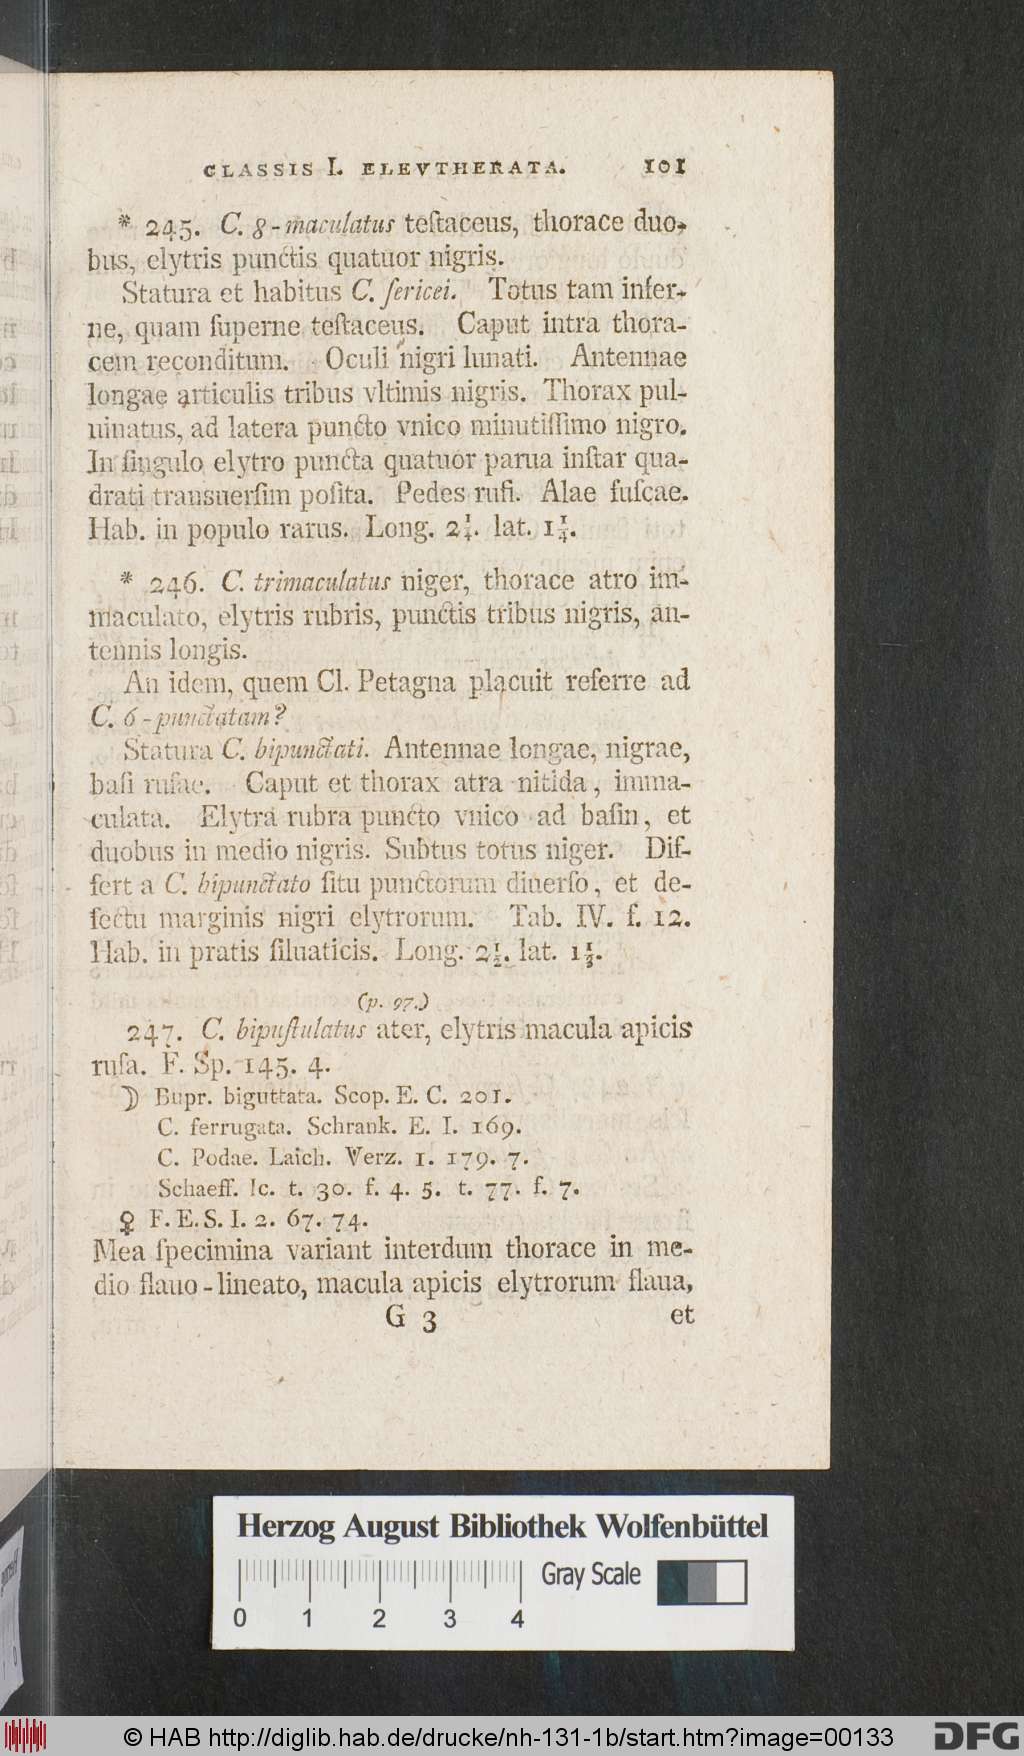 CLASSIS I. ELEVTHERATA. 101
* 245. C. 8-maculatus teſtaceus, thorace duo-
bus, elytris punctis quatuor nigris.
Statura et habitus C. ſericei. Totus tam infer-
ne, quam ſuperne teſtaceus. Caput intra thora-
cem reconditum. Oculi nigri lunati. Antennae
longae articulis tribus vltimis nigris. Thorax pul-
uinatus, ad latera puncto vnico minutiſſimo nigro.
In ſingulo elytro puncta quatuor parua inſtar qua-
drati transuerſim poſita. Pedes rufi. Alae fuſcae.
Hab. in populo rarus. Long. 2¼. lat. 1¼.
* 246. C. trimaculatus niger, thorace atro im-
maculato, elytris rubris, punctis tribus nigris, an-
tennis longis.
An idem, quem Cl. Petagna placuit referre ad
C. 6-punctatam?
Statura C. bipunctati. Antennae longae, nigrae,
baſi rufae. Caput et thorax atra nitida, imma-
culata. Elytra rubra puncto vnico ad baſin, et
duobus in medio nigris. Subtus totus niger. Dif-
fert a C. bipunctato ſitu punctorum diuerſo, et de-
fectu marginis nigri elytrorum. Tab. IV. f. 12.
Hab. in pratis ſiluaticis. Long. 2½. lat. 1⅓.
(p. 97.)
247. C. bipuſtulatus ater, elytris macula apicis
rufa. F. Sp. 145. 4.
☽ Bupr. biguttata. Scop. E. C. 201.
C. ferrugata. Schrank. E. I. 169.
C. Podae. Laich. Verz. 1. 179. 7.
Schaeff. Ic. t. 30. f. 4. 5. t. 77. f. 7.
♀ F. E. S. I. 2. 67. 74.
Mea ſpecimina variant interdum thorace in me-
dio flauo-lineato, macula apicis elytrorum flaua,
G 3 et
Herzog August Bibliothek Wolfenbüttel
0 1 2 3 4 Gray Scale
© HAB http://diglib.hab.de/drucke/nh-131-1b/start.htm?image=00133 DFG